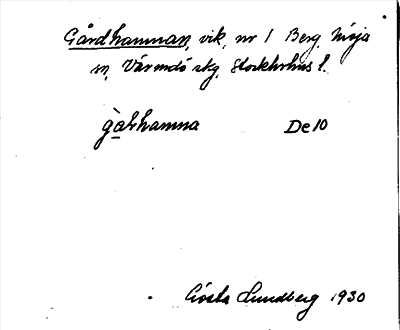 Gårdhamnan, vik, nr 1 Berg, Möja
sn, Värmdö skg, Stockholms l.
gàḷhamna De 10
Gösta Lundberg 1930